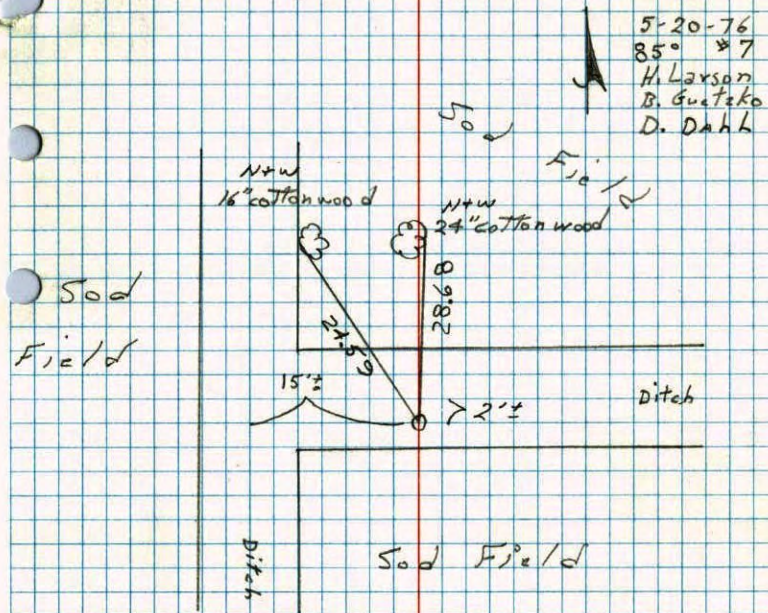 5-20-76
85° #7
H. Larson
B. Guetzko
D. DAHL
Sod
Field
N+W
16" cottonwood
N+W
24" cottonwood
28.68
24.59
Sod
Field
15'±
> 2'±
Ditch
Ditch
Sod Field